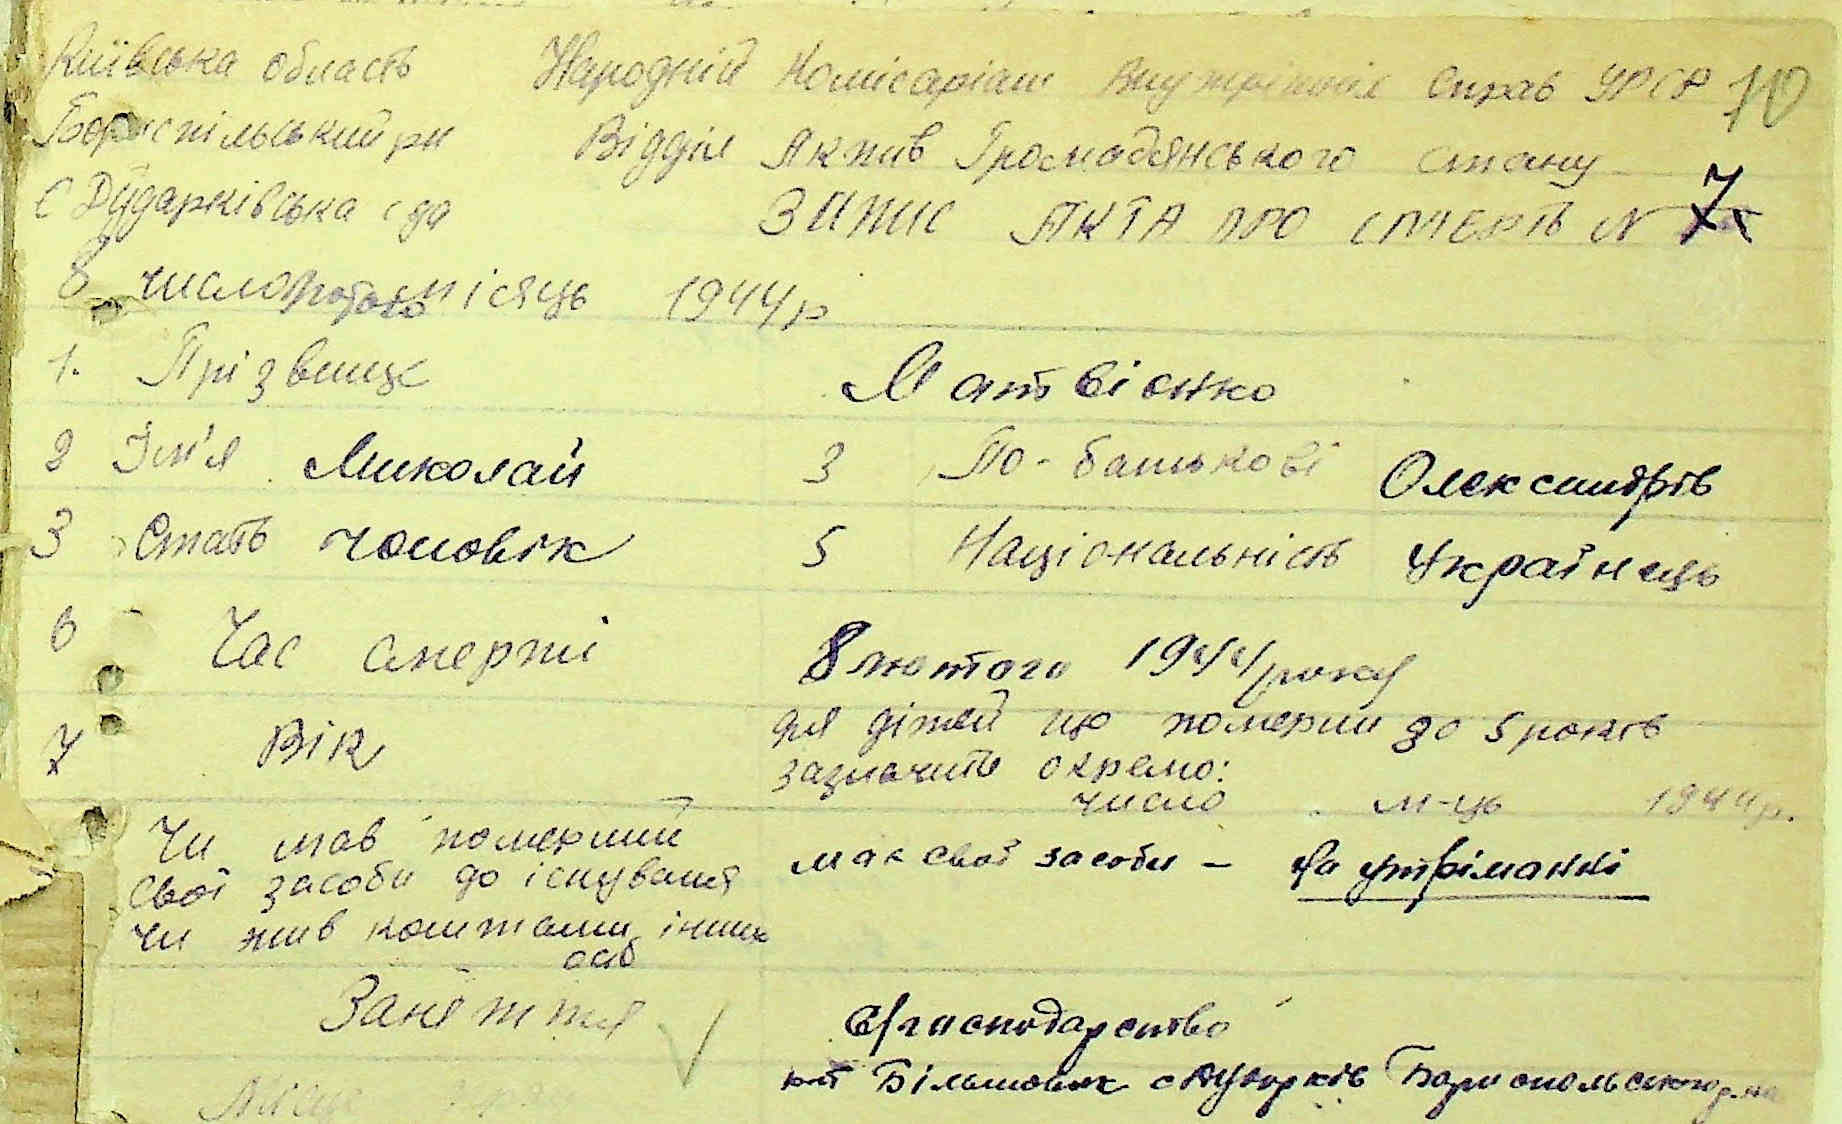 Київська область Народній Комісаріат Внутрішніх Справ УРСР 10
Бориспільський рн Відділ Актив Громадянського стану
С Дударківська с да ЗАПИС АКТА ПРО СМЕРТЬ N 7
8 число лютого місяць 1944 р
1. Прізвище Матвієнко
2 Ім'я Миколай 3 По-батькові Олександрів
3 Стать чоловік 5 Національність Українець
6 Час смерті 8 лютого 1944 року
7 Вік для дітей що померли до 5 років
зазначить окремо:
число м-ць 1944р.
Чи мав померший
свої засоби до існування має свої засоби - На утріманні
чи жив коштами інших
осіб
Заняття С/господарство
Більшовик Бориспольського р-на
Місце